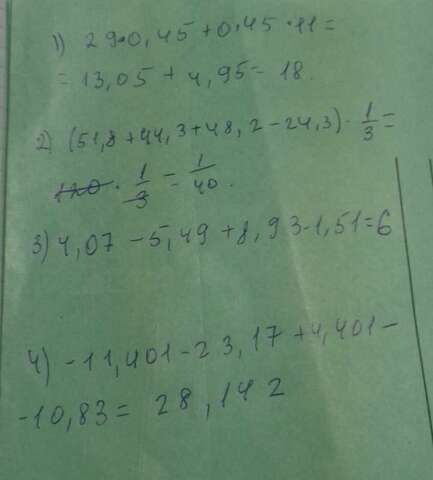 1) 29·0,45+0,45·11=
=13,05+4,95=18.
2) (51,8+44,3+48,2-24,3)·1/3=
120·1/3=1/40.
3) 4,07-5,49+8,93-1,51=6
4) -11,401-23,17+4,401-
-10,83=28,142